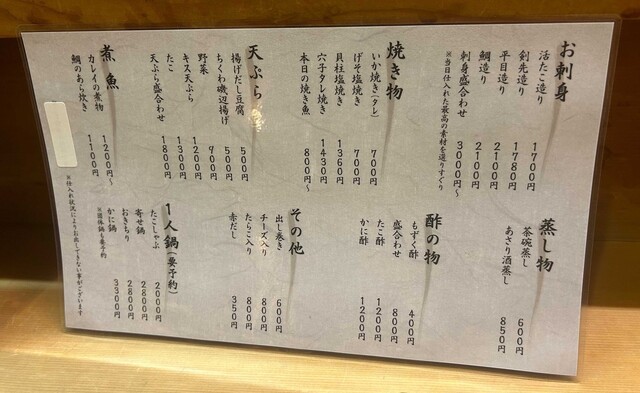 お刺身
活たこ造り 1700円
剣先造り 1780円
平目造り 2100円
鯛造り 2100円
刺身盛合わせ 3000円〜
※当日仕入れた最高の素材を選りすぐり
焼き物
いか焼き(タレ) 700円
げそ塩焼き 700円
貝柱塩焼き 1360円
穴子タレ焼き 1430円
本日の焼き魚 800円〜
天ぷら
揚げだし豆腐 500円
ちくわ磯辺揚げ 500円
野菜 900円
キス天ぷら 1200円
たこ 1300円
天ぷら盛合わせ 1800円
煮魚
カレイの煮物 1200円〜
鯛のあら炊き 1100円
蒸し物
茶碗蒸し 600円
あさり酒蒸し 850円
酢の物
もずく酢 400円
盛合わせ 800円
たこ酢 1200円
かに酢 1200円
その他
出し巻き 600円
チーズ入り 800円
たらこ入り 800円
赤だし 350円
1人鍋(要予約)
たこしゃぶ 2000円
寄せ鍋 2800円
おきちり 2800円
かに鍋 3300円
※団体鍋も要予約
※仕入れ状況によりお出しできない事がございます